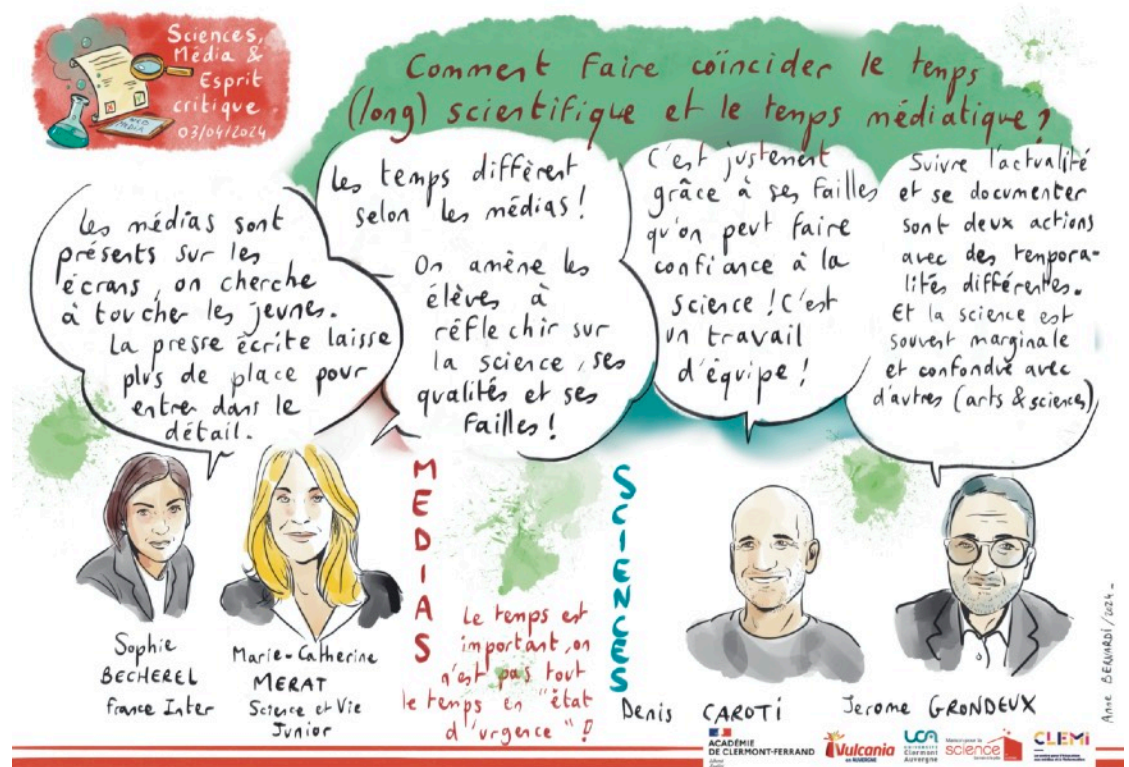 Sciences,
Média &
Esprit
critique
03/04/2024
MEDIA
Comment faire coïncider le temps
(long) scientifique et le temps médiatique ?
Les médias sont
présents sur les
écrans, on cherche
à toucher les jeunes.
La presse écrite laisse
plus de place pour
entrer dans le
détail.
Les temps diffèrent
selon les médias !
On amène les
élèves à
réfléchir sur
la science, ses
qualités et ses
failles !
C'est justement
grâce à ses failles
qu'on peut faire
confiance à la
science ! C'est
un travail
d'équipe !
Suivre l'actualité
et se documenter
sont deux actions
avec des tempora-
lités différentes.
Et la science est
souvent marginale
et confondue avec
d'autres (arts & sciences)
MEDIAS
SCIENCES
Le temps est
important, on
n'est pas tout
le temps en "état
d'urgence" !
Sophie
BECHEREL
France Inter
Marie-Catherine
MERAT
Science et Vie
Junior
Denis CAROTI
Jerome GRONDEUX
Anne BERNARDI / 2024 -
ACADÉMIE
DE CLERMONT-FERRAND
Vulcania
en AUVERGNE
UCA
UNIVERSITÉ
Clermont
Auvergne
Maison pour la
science
CLEMI